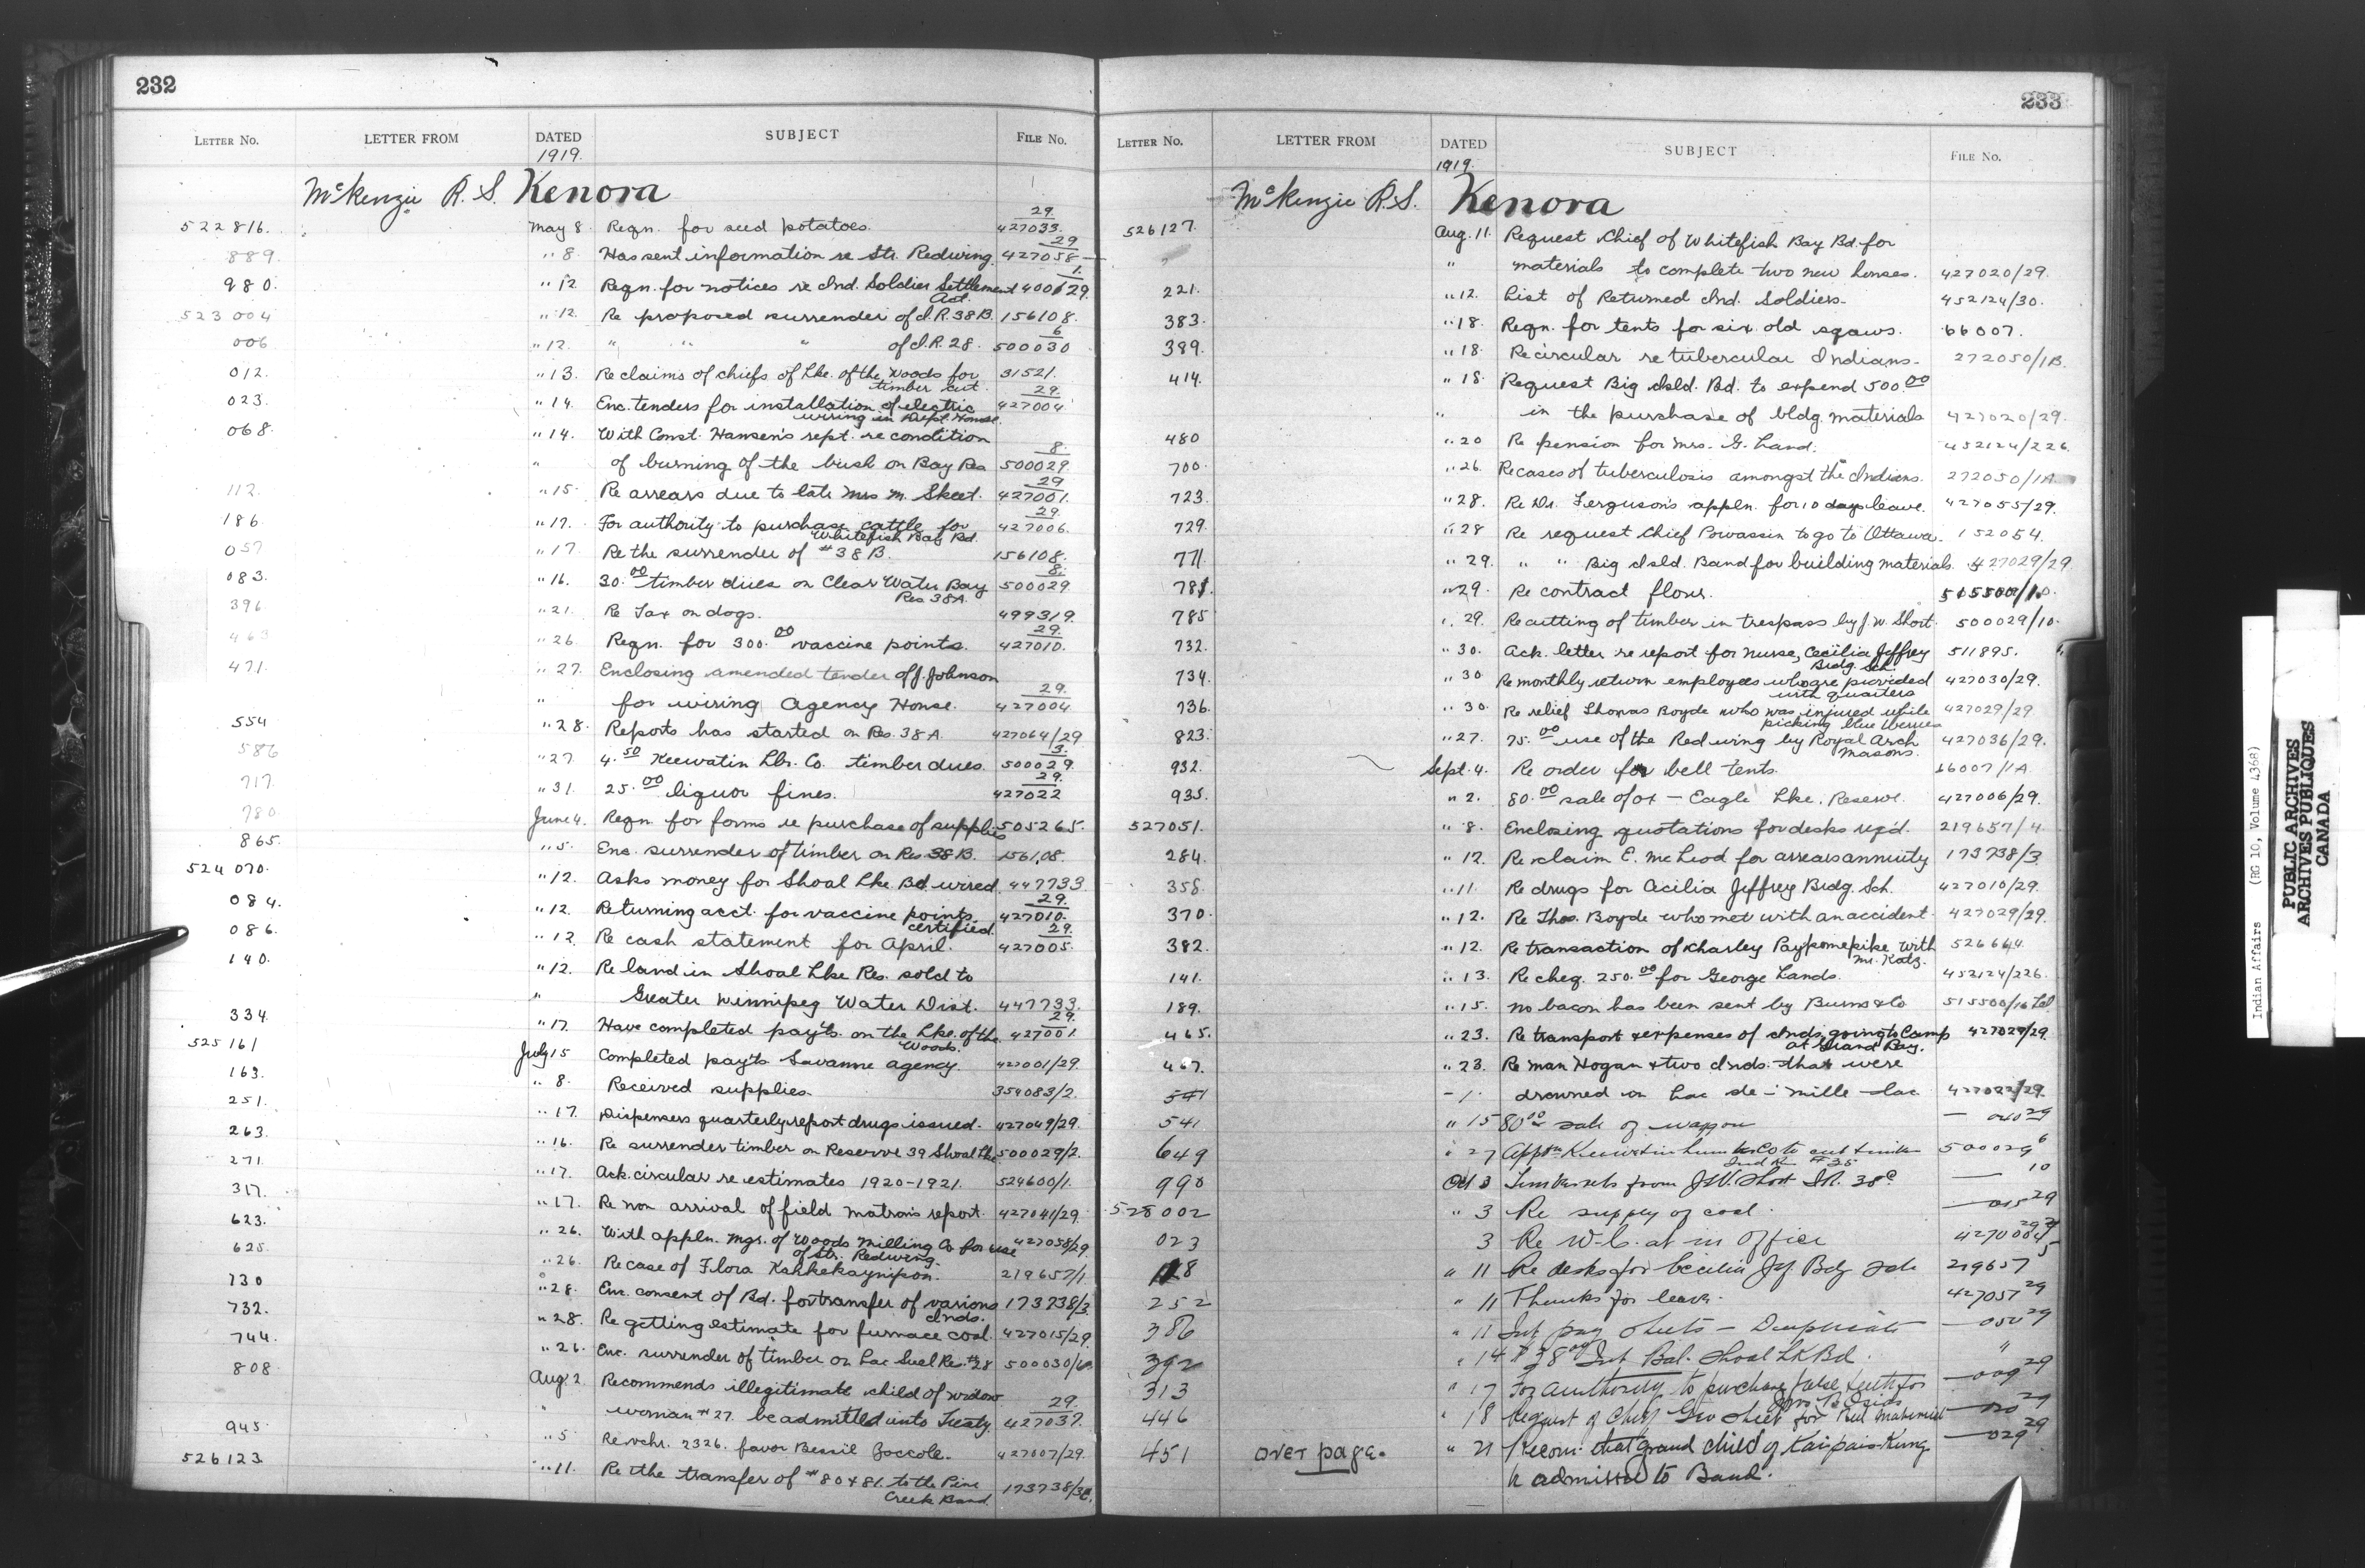 232
LETTER No. LETTER FROM DATED SUBJECT FILE No.
1919.
McKenzie R. S. Kenora
522816. May 8 Reqn. for seed potatoes. 427033/29
889. " 8. Has sent information re Str. Redwing. 427058/29
980. " 12 Reqn. for notices re Ind. Soldier Settlement Act. 4001/29
523004 " 12. Re proposed surrender of I.R. 38B. 156108.
006 " 12. " " " of I.R. 28. 500030/6
012. " 13. Re claims of chiefs of Lke. of the Woods for timber cut. 31521.
023. " 14. Enc. tenders for installation of electric wiring in Dept. House. 427004/29
068. " 14. With Const. Hansen's rept. re condition
" of burning of the bush on Bay Res 500029/8
112. " 15. Re arrears due to late Mrs M. Skeet. 427001/29
186. " 17. For authority to purchase cattle for Whitefish Bay Bd. 427006/29
057 " 17 Re the surrender of #38B. 156108.
083. " 16. 30.00 timber dues on Clear Water Bay Res 38A. 500029/8
396 " 21. Re Tax on dogs. 499319.
463 " 26. Reqn. for 300.00 vaccine points. 427010/29
471. " 27. Enclosing amended tender of J. Johnson
" for wiring Agency House. 427004/29
554 " 28. Reports has started on Res. 38A. 427064/29
586 " 27. 4.50 Keewatin Lbr. Co. timber dues. 500029/3
717. " 31. 25.00 liquor fines. 427022/29
780. June 4. Reqn. for forms re purchase of supplies 505265.
865. " 5. Enc. surrender of timber on Res. 38B. 156108.
524070. " 12. Asks money for Shoal Lke Bd wired. 447733
084. " 12. Returning acct. for vaccine points certified. 427010/29
086. " 12. Re cash statement for April. 427005/29
140. " 12. Re land in Shoal Lke Res. sold to
" Greater Winnipeg Water Dist. 447733.
334. " 17. Have completed pay'ts. on the Lke. of the Woods. 427001/29
525161 July 15 Completed pay'ts Savanne agency. 427001/29.
163. " 8. Received supplies. 354083/2.
251. " 17. Dispensers quarterly report drugs issued. 427049/29.
263. " 16. Re surrender timber on Reserve 39 Shoal Lke 500029/2.
271. " 17. Ack. circular re estimates 1920-1921. 524600/1.
317. " 17. Re non arrival of field matron's report. 427041/29.
623. " 26. With appln. Mgr. of Woods Milling Co for use of Str. Redwing. 427058/29
625. " 26. Re case of Flora Kahkekaynipon. 219657/1
730 " 28. Enc. consent of Bd. for transfer of various Inds. 173738/3.
732. " 28. Re getting estimate for furnace coal. 427015/29
744. " 26. Enc. surrender of timber on Lac Seul Res. #28 500030/6
808 Aug. 2. Recommends illegitimate child of widow
" woman #27. be admitted into Treaty. 427037/29.
945. " 5. Re vchr. 2326. favor Bessie Zoccole. 427007/29.
526123. " 11. Re the transfer of #80 & 81. to the Pine Creek Band. 173738/3
233
LETTER No. LETTER FROM DATED SUBJECT FILE No.
1919.
McKenzie R.S. Kenora
526127. Aug. 11. Request Chief of Whitefish Bay Bd. for
" materials to complete two new houses. 427020/29.
221. " 12. List of Returned Ind. Soldiers. 452124/30.
383. " 18. Reqn. for tents for six old sqaws. 66007.
389. " 18. Re circular re tubercular Indians. 272050/1B.
414. " 18. Request Big Isld. Bd. to expend 500.00
" in the purchase of bldg. materials 427020/29.
480 " 20 Re pension for Mrs. G. Land. 452124/226.
700. " 26. Re cases of tuberculosis amongst the Indians. 272050/1A
723. " 28. Re Dr. Ferguson's appln. for 10 days leave. 427055/29.
729. " 28 Re request Chief Powassin to go to Ottawa. 152054.
771. " 29. " " Big Isld. Band for building materials. 427029/29.
781. " 29. Re contract flour. 515500/10.
785 " 29. Re cutting of timber in trespass by J. W. Short. 500029/10.
732. " 30. Ack. letter re report for nurse, Cecilia Jeffrey Brdg. Sch. 511895.
734. " 30 Re monthly return employees who are provided with quarters 427030/29.
736. " 30. Re relief Thomas Boyde who was injured while picking blue berries 427029/29
823. " 27. 75.00 use of the Redwing by Royal Arch Masons. 427036/29.
932. Sept. 4. Re order for bell tents. 66007/1A
935. " 2. 80.00 sale of ox — Eagle Lke. Reserve. 427006/29.
527051. " 8. Enclosing quotations for desks req'd. 219657/4.
284. " 12. Re claim E. McLeod for arrears annuity 173738/3
358. " 11. Re drugs for Cecilia Jeffrey Brdg. Sch. 427010/29.
370. " 12. Re Thos. Boyde who met with an accident. 427029/29.
382. " 12. Re transaction of Charley Paypomepike with Mr. Katz. 526644.
141. " 13. Re cheq. 250.00 for George Lands. 452124/226.
189. " 15. No bacon has been sent by Burns & Co 515500/16
465. " 23. Re transport & expenses of Inds. going to Camp at Grand Bay. 427029/29.
467. " 23. Re man Hogan & two Inds. that were
drowned on Lac de mille lac. 427022/29.
541 " 15 80.00 sale of waggon — 040 29
649 " 27 Appn Keewatin Lumber Co to cut timber Ind R #35 500029 6
990 Oct 3 Timber cuts from J.W. Short I.R. 38C — 10
528002 " 3 Re supply of coal. — 015 29
023 3 Re W.C. at in office 427004 29
128 " 11 Re desks for Cecilia Jef. Bdg Sch 219657 5
252 " 11 Thanks for leave. 427057 29
386 " 11 Int pay sheets — Duplicate — 050 29
392 " 14 $38.00 Int Bal. Shoal Lk Bd. "
313 " 17 For authority to purchase false teeth for — 009 29
446 " 18 Request of Chief Geo Skeet for Bld material — 020 29
451 over page. " 21 Recom. that grand child of Kaipais-Kung — 029 29
be admitted to Band.
Indian Affairs (RG 10, Volume 4368)
PUBLIC ARCHIVES
ARCHIVES PUBLIQUES
CANADA